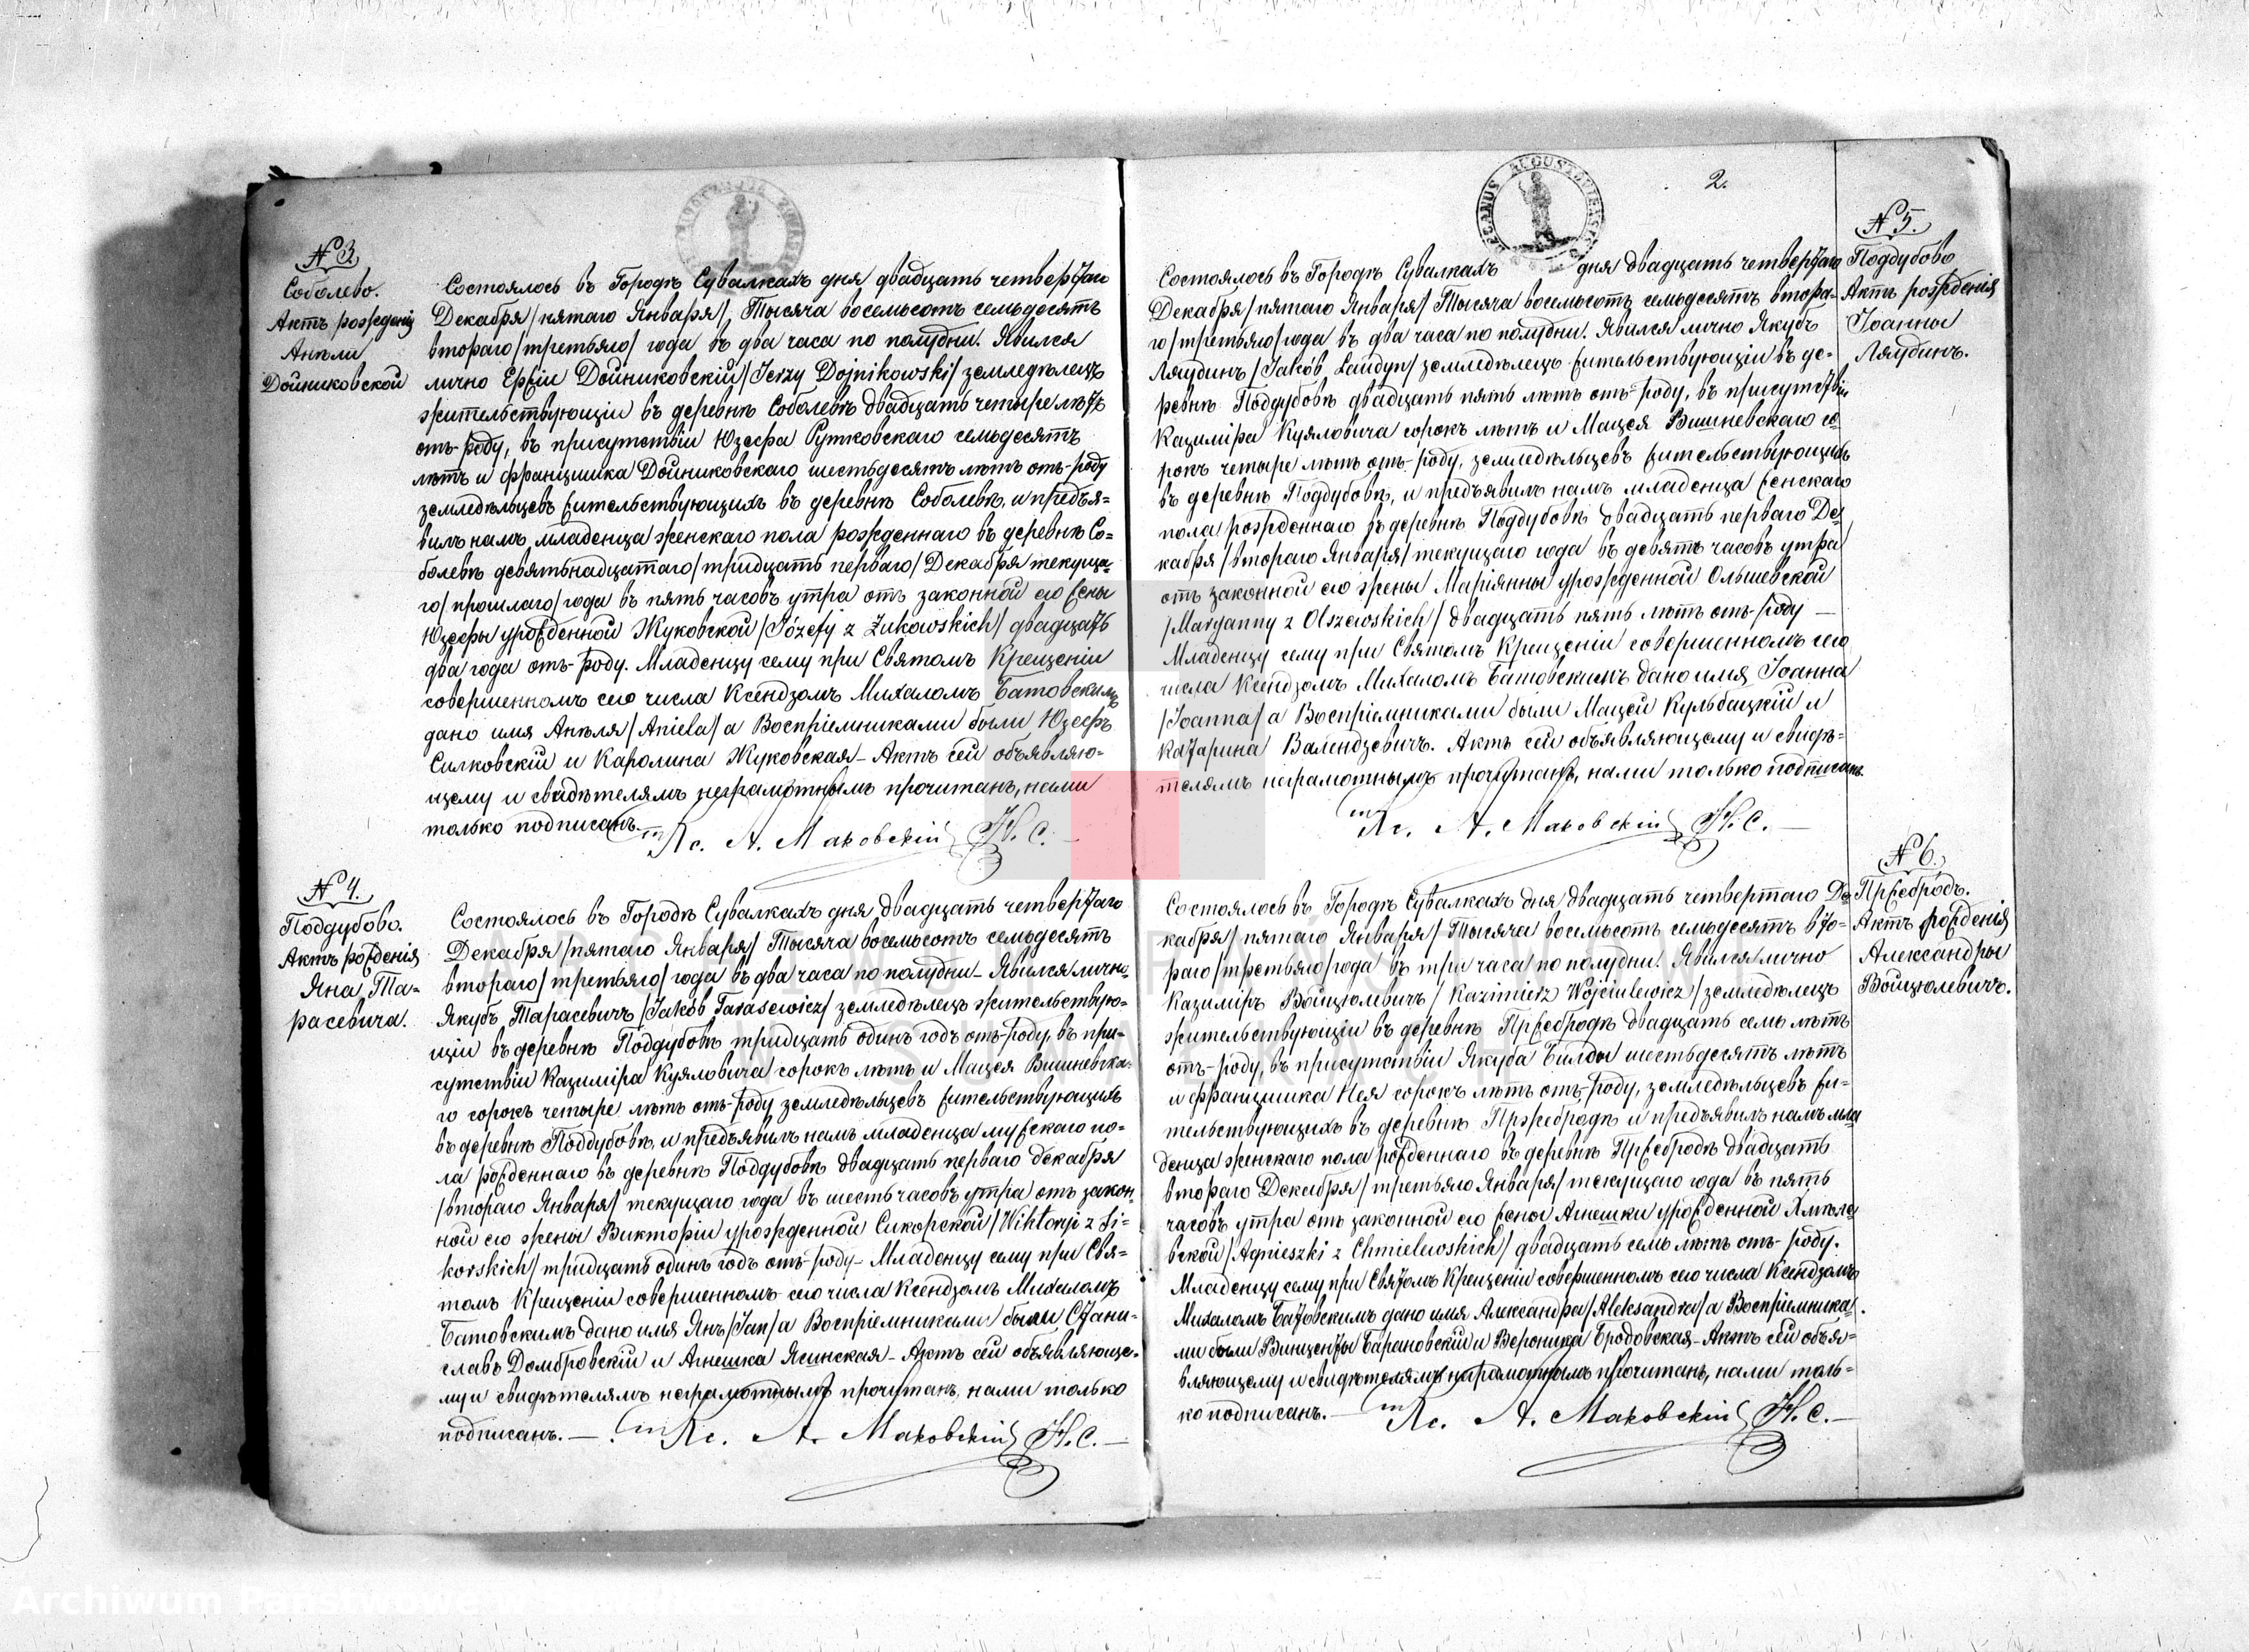 № 3
Соболево.
Актъ рожденія
Анѣли
Дойниковской
Состоялось въ Городѣ Сувалкахъ дня двадцать четвертаго
Декабря/пятаго Января/, Тысяча восемьсотъ семьдесятъ
втораго/третьяго/ года въ два часа по полудни. Явился
лично Ержи Дойниковскій/Jerzy Dojnikowski/ земледѣлецъ
жительствующіи въ деревнѣ Соболевѣ двадцать четыре лѣтъ
отъ-роду, въ присутствіи Юзефа Рутковскаго семьдесятъ
лѣтъ и францишка Дойниковскаго шестьдесятъ лѣтъ отъ-роду
земледѣльцевъ жительствующихъ въ деревнѣ Соболевѣ, и предъя=
вилъ намъ младенца женскаго пола рожденнаго въ деревнѣ Со=
болевѣ девятьнадцатаго/тридцать перваго/ Декабря текуща-
го/прошлаго/года въ пять часовъ утра отъ законной его жены
Юзефы урожденной Жуковской/Józefy z Żukowskich/ двадцать
два года отъ-роду. Младенцу сему при Святомъ Крещеніи
совершенномъ сего числа Ксендзомъ Михаломъ Батовскимъ
дано имя Анѣля/Aniela/а Воспріемниками были Юзефъ
Силковскій и Каролина Жуковская- Актъ сей объявляю-
щему и свидѣтелямъ неграмотнымъ прочитанъ, нами
только подписанъ.
Кс. А. Маковскій Н. С.
№ 4.
Поддубово.
Актъ рожденія
Яна Та-
расевича.
Состоялось въ Городѣ Сувалкахъ дня двадцать четвертаго
Декабря/пятаго Января/ Тысяча восемьсотъ семьдесятъ
втораго/третьяго/года въ два часа по полудни- Явился лично
Якубъ Тарасевичъ/Jakób Tarasewicz/ земледѣлецъ жительствую-
щіи въ деревнѣ Поддубовѣ тридцать одинъ годъ отъ-роду, въ при-
сутствіи Казиміра Куяловича сорокъ лѣтъ и Мацея Вишневска-
го сорокъ четыре лѣтъ отъ-роду земледѣльцевъ жительствующихъ
въ деревнѣ Поддубовѣ, и предъявилъ намъ младенца мужскаго по-
ла рожденнаго въ деревнѣ Поддубовѣ двадцать перваго декабря
/втораго Января/ текущаго года въ шесть часовъ утра отъ закон-
ной его жены Викторіи урожденной Сикорской/Wiktorji z Si=
korskich/ тридцать одинъ годъ отъ-роду- Младенцу сему при Свя=
томъ Крещеніи совершенномъ сего числа Ксендзомъ Михаломъ
Батовскимъ дано имя Янъ/Jan/а Воспріемниками были Стани-
славъ Домбровскій и Агнешка Ясинская- Актъ сей объявляюще-
му и свидѣтелямъ неграмотнымъ прочитанъ, нами только
подписанъ.
Кс. А. Маковскій Н. С.
2.
№ 5.
Поддубово
Актъ рожденія
Іоанны
Ляудинъ.
Состоялось въ Городѣ Сувалкахъ дня двадцать четвертаго
Декабря/пятаго Января/ Тысяча восемьсотъ семьдесятъ втора-
го/третьяго/года въ два часа по полудни. Явился лично Якубъ
Ляудинъ/Jakób Laudyn/ земледѣлецъ жительствующіи въ де-
ревнѣ Поддубовѣ двадцать пять лѣтъ отъ-роду, въ присутствіи
Казиміра Куяловича сорокъ лѣтъ и Мацея Вишневскаго со-
рокъ четыре лѣтъ отъ-роду, земледѣльцевъ жительствующихъ
въ деревнѣ Поддубовѣ, и предъявилъ намъ младенца женскаго
пола рожденнаго въ деревнѣ Поддубовѣ двадцать перваго Де-
кабря/втораго Января/текущаго года въ девять часовъ утра
отъ законной его жены Маріянны урожденной Ольшевской
/Maryanny z Olszewskich/ двадцать пять лѣтъ отъ-роду
Младенцу сему при Святомъ Крещеніи совершенномъ сего
числа Ксендзомъ Михаломъ Батовскимъ дано имя Іоанна
/Joanna/а Воспріемниками были Мацей Кульбацкій и
Катарина Валендзевичъ. Актъ сей объявляющему и свидѣ=
телямъ неграмотнымъ прочитанъ, нами только подписанъ.
Кс. А. Маковскій Н. С.
№ 6.
Пржебродъ.
Актъ рожденія
Александры
Войцюлевичъ.
Состоялось въ Городѣ Сувалкахъ дня двадцать четвертаго Де-
кабря/пятаго Января/ Тысяча восемьсотъ семьдесятъ вто-
раго/третьяго/года въ три часа по полудни. Явился лично
Казиміръ Войцюлевичъ/Kazimierz Wojciulewicz/земледѣлецъ
жительствующіи въ деревнѣ Пржебродѣ двадцать семь лѣтъ
отъ-роду, въ присутствіи Якуба Билды шестьдесятъ лѣтъ
и францишка Нея сорокъ лѣтъ отъ-роду, земледѣльцевъ жи-
тельствующихъ въ деревнѣ Пржебродѣ и предъявилъ намъ мла
денца женскаго пола рожденнаго въ деревнѣ Пржебродѣ двадцать
втораго Декабря/третьяго Января/текущаго года въ пять
часовъ утра отъ законной его жены Агнешки урожденной Хмѣле
вской/Agnieszki z Chmielewskich/ двадцать семь лѣтъ отъ-роду.
Младенцу сему при Святомъ Крещеніи совершенномъ сего числа Ксендзомъ
Михаломъ Батовскимъ дано имя Александра/Aleksandra/а Воспріемника-
ми были Винценты Барановскій и Вероника Бродовская-Актъ сей объя=
вляющему и свидѣтелямъ неграмотнымъ прочитанъ, нами толь=
ко подписанъ.
Кс. А. Маковскій Н. С.
Archiwum Państwowe w Suwałkach